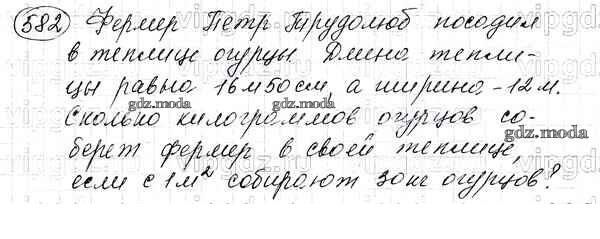 582 Фермер Петр Трудолюб посадил
в теплице огурцы. Длина тепли-
цы равна 16 м 50 см, а ширина - 12 м.
Сколько килограммов огурцов со-
берет фермер в своей теплице,
если с 1 м² собирают 30 кг огурцов?
gdz.moda
gdz.moda
gdz.moda